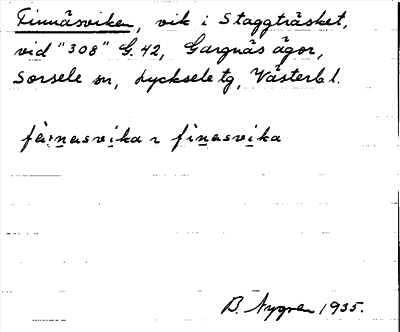 Finnäsviken, vik i Staggträsket,
vid "308" G. 42, Gargnäs ägor,
Sorsele sn, Lycksele tg, Västerb l.
finasvika
B. Nygren 1935.